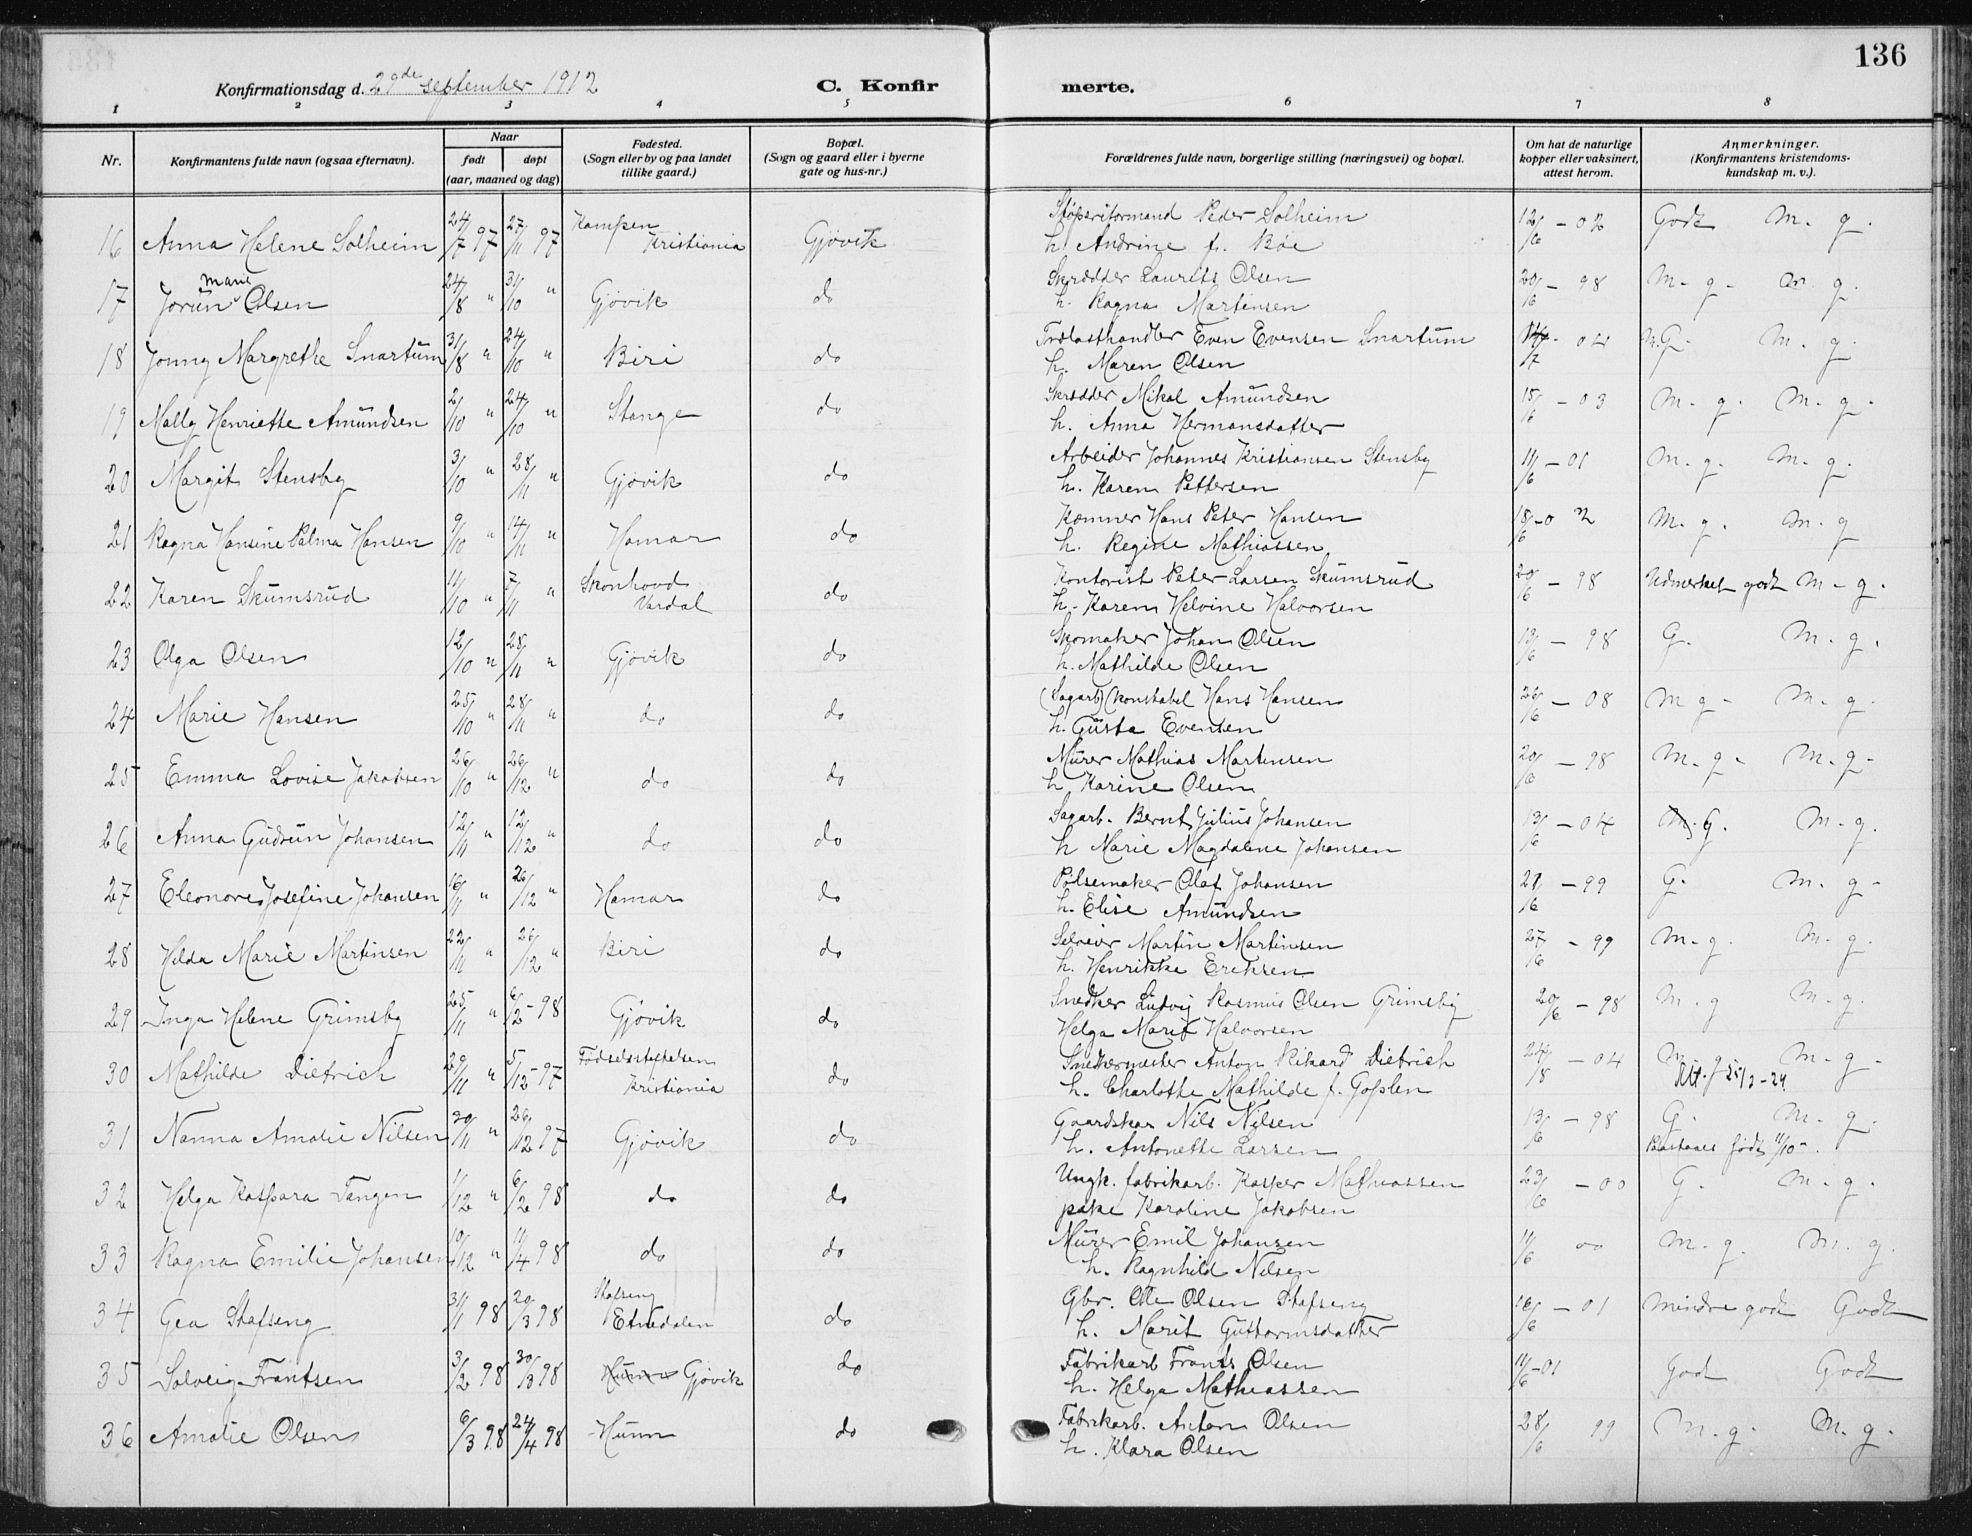 136
Konfirmationsdag d. 29de september 1912 C. Konfirmerte.
1 2 3 4 5 6 7 8
Nr. Konfirmantens fulde navn (ogsaa efternavn). Naar født døpt (aar, maaned og dag) Fødested. (Sogn eller by og paa landet tillike gaard.) Bopæl. (Sogn og gaard eller i byerne gate og hus-nr.) Forældrenes fulde navn, borgerlige stilling (næringsvei) og bopæl. Om hat de naturlige kopper eller vaksinert, attest herom. Anmerkninger. (Konfirmantens kristendoms-kundskap m. v.).
16 Anna Helene Solheim 24/7 97 27/11 97 Kampen Kristiania Gjøvik Støperiformand Peder Solheim 12/6 - 02 Godt M. g.
h. Andrine f. Bøe
17 Jorun Marie Olsen 24/8 " 31/10 " Gjøvik do Skrædder Laurits Olsen 20/6 - 98 M. g. M. g.
h. Ragna Martinsen
18 Jonny Margrethe Snartum 31/8 " 24/10 " Biri do Trælasthandler Even Evensen Snartum 04 M. g.
h. Maren Olsen
19 Mally Henriette Amundsen 2/10 " 24/10 " Stange do Skrædder Mikal Amundsen 15/6 - 03 M. g. M. g.
h. Anna Hermansdatter
20 Margit Stensby 3/10 " 28/11 " Gjøvik do Arbeider Johannes Kristiansen Stensby 11/6 - 01 M. g. M. g.
h. Karen Pettersen
21 Ragna Hansine Palma Hansen 9/10 " 14/11 " Hamar do Kæmner Hans Peter Hansen 18/6 - 02 M. g. M. g
h. Regine Mathiassen
22 Karen Skumsrud 11/10 " 7/11 " Skonhovd Vardal do Kontorist Peter Larsen Skumsrud 20/6 - 98 Udmerket godt M. g.
h. Karen Helvine Halvorsen
23 Olga Olsen 12/10 " 28/11 " Gjøvik do Skomaker Johan Olsen 13/6 - 98 G. M. g.
h. Mathilde Olsen
24 Marie Hansen 25/10 " 28/11 " do do (Sagarb) (konstabel Hans Hansen 26/6 - 08 M g. M. g.
h. Gusta Evensen
25 Emma Lovise Jakobsen 26/10 " 26/12 " do do Murer Mathias Martinsen 20/6 - 98 M. g. M. g.
h. Karine Olsen
26 Anna Gudrun Johansen 12/11 " 12/12 " do do Sagarb. Bernt Julius Johansen 13/6 - 04 G. M. g.
h Marie Magdalene Johansen
27 Eleonore Josefine Johansen 16/11 " 26/12 " Hamar do Pølsemaker Olaf Johansen 21/6 - 99 G. M. g.
h. Elise Amundsen
28 Hilda Marie Martinsen 22/11 " 26/12 " Biri do Martin Martinsen 27/6 - 99 M. g. M. g.
h. Henrikke Eriksen
29 Inga Helene Grimsby 25/11 " 6/2 - 98 Gjøvik do Snedker Ludvig Rasmus Olsen Grimsby 20/6 - 98 M. g M. g.
Helga Marie Halvorsen
30 Mathilde Dietrich 29/11 " 5/12 - 97 Fødselsstiftelsen Kristiania do Snedkermester Anton Rikard Dietrich 24/8 - 04 M. g. M. g.
h. Charlotte Mathilde f. Gopslen
31 Nanna Amalie Nilsen 30/11 " 26/12 97 Gjøvik do Gaardskar Nils Nilsen 13/6 - 98 G. M. g.
h. Antonette Larsen Paastaaes født 11/10
32 Helga Kaspara Tangen 11/12 " 6/2 98 do do Ungk. fabrikarb. Kasper Mathiassen 23/6 - 00 G. M. g.
pike Karoline Jakobsen
33 Ragna Emilie Johansen 19/12 " 11/4 98 do do Murer Emil Johansen 11/6 00 M. g. M. g.
h. Ragnhild Nilsen
34 Gea Stafseng 31/1 98 20/3 98 Stafseng Etnedalen do Gbr. Ole Olsen Stafseng 16/6 - 01 Mindre godt Godt
h. Marit Guttormsdatter
35 Solveig Frantsen 3/2 98 30/3 98 Hunn Gjøvik do Fabrikarb Frants Olsen 11/6 - 01 God Godt
h. Helga Mathiassen
36 Amalie Olsen 6/3 98 24/4 98 Hunn do Fabrikarb. Anton Olsen 28/6 99 M. g. M. g.
h. Klara Olsen